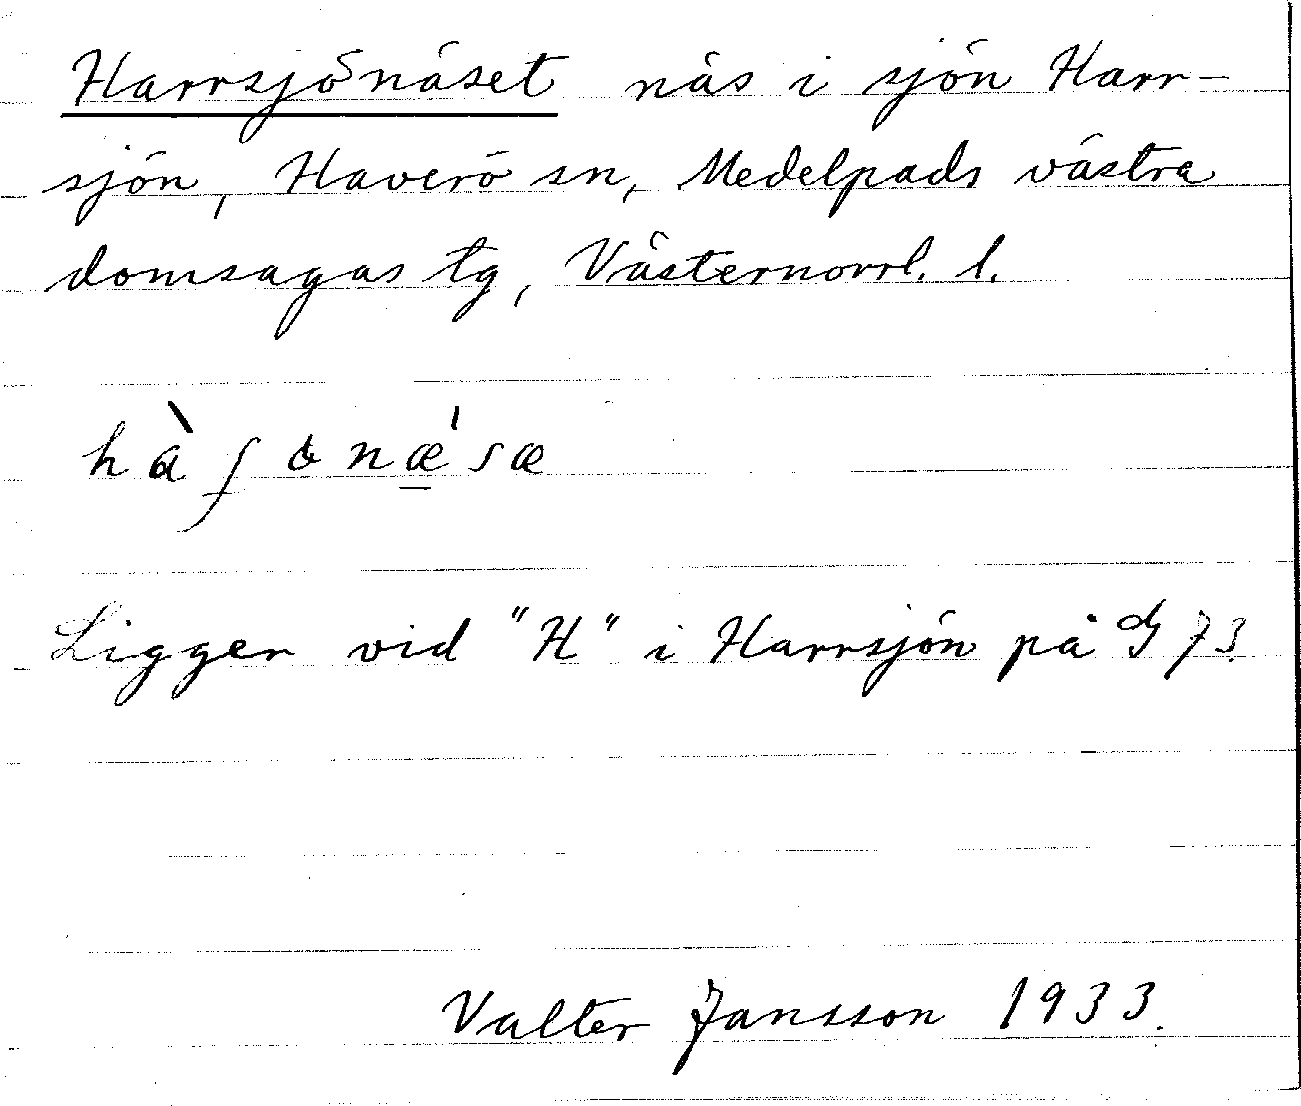 Harrsjönäset näs i sjön Harr-
sjön, Haverö sn, Medelpads västra
domsagas tg, Västernorrl. l.
Ligger vid "H" i Harrsjön på G 73.
Valter Jansson 1933.